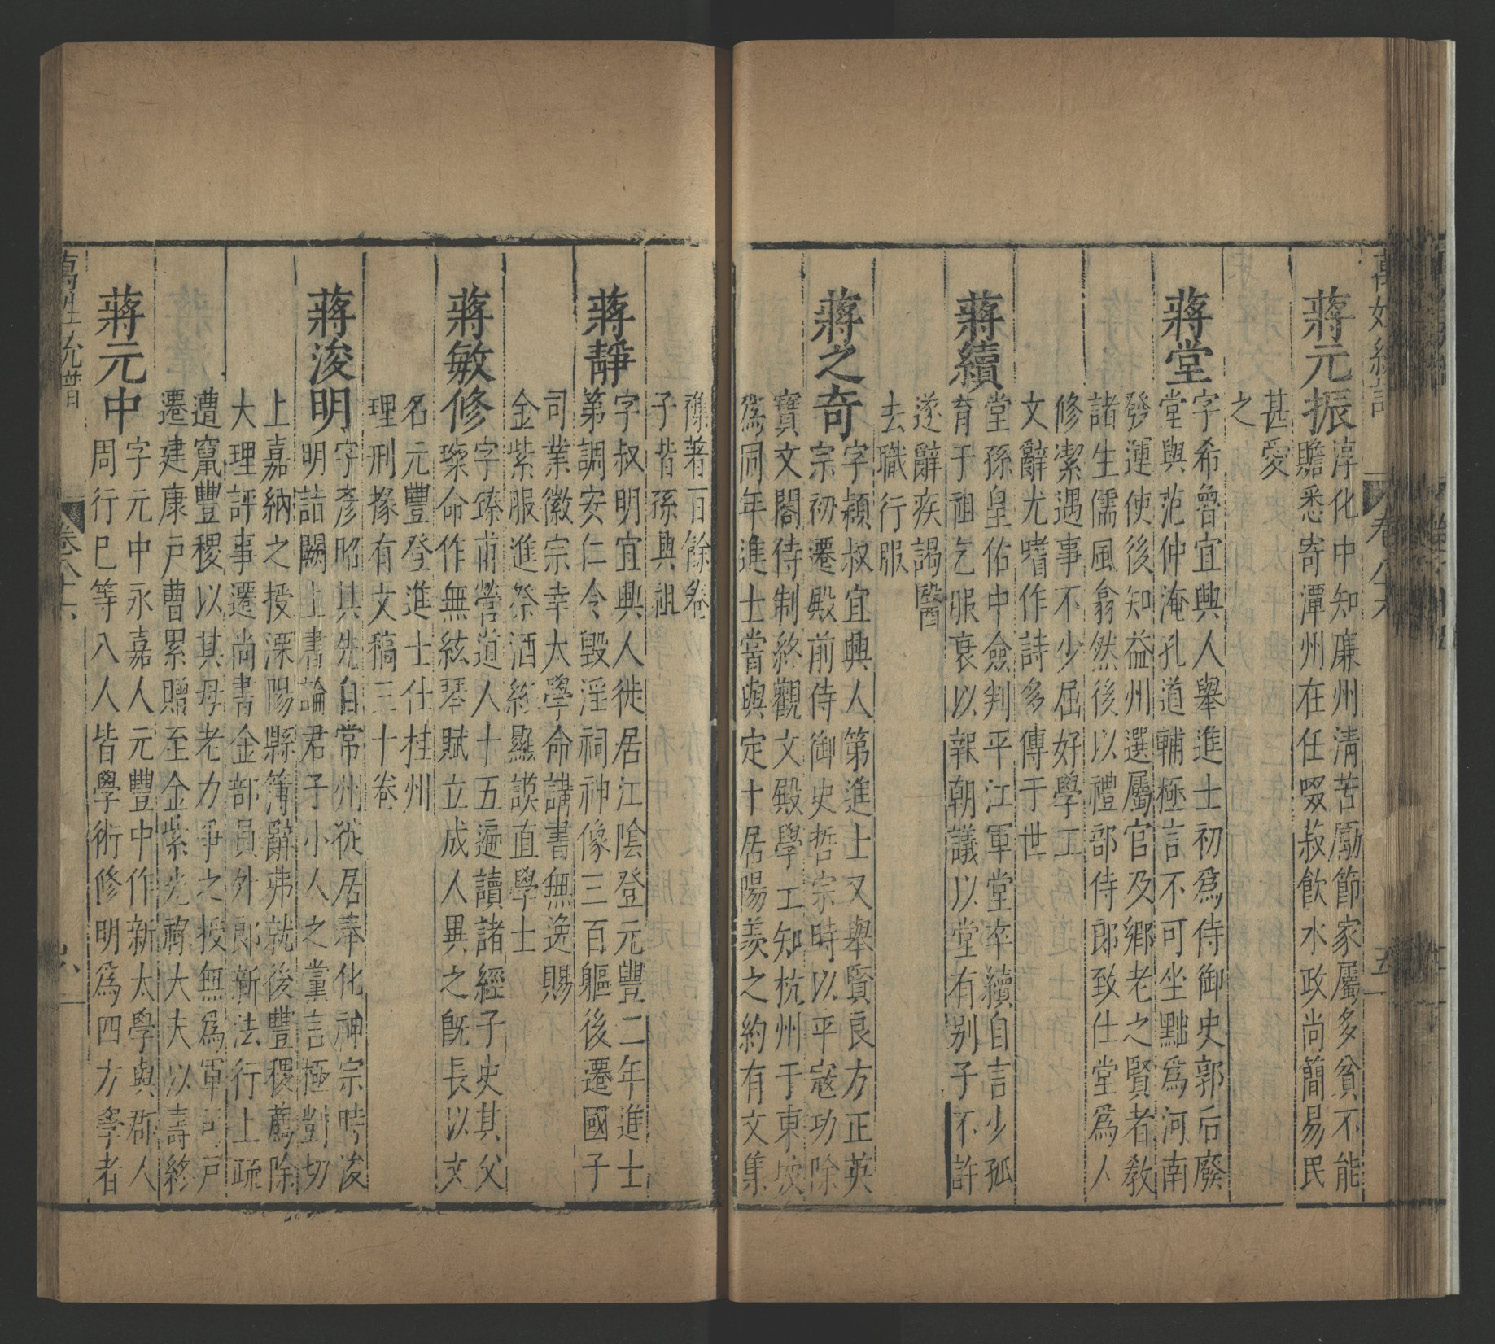 蔣元振
淳化中知廉州清苦勵節家屬多貧不能
贍悉寄潭州在任啜菽飲水政尚簡易民
甚愛
之
蔣堂
字希魯宜興人舉進士初為侍御史郭后廢
堂與范仲淹孔道輔極言不可坐黜為河南
發運使後知益州選屬官及鄉老之賢者教
諸生儒風翕然後以禮部侍郎致仕堂為人
修潔遇事不少屈好學工
文辭尤嗜作詩多傳于世
蔣續
堂孫皇佑中僉判平江軍堂卒續自言少孤
育于祖乞服衰以報朝議以堂有別子不許
遂辭疾謁醫
去職行服
蔣之奇
字穎叔宜興人第進士又舉賢良方正英
宗初遷殿前侍御史哲宗時以平寇功除
寶文閣侍制終觀文殿學工知杭州于東坡
為同年進士當與定十居陽羨之約有文集
雜著百餘卷
子㫺孫興祖
蔣靜
字叔明宜興人徙居江陰登元豐二年進士
第調安仁令毀淫祠神像三百軀後遷國子
司業徽宗幸太學命講書無逸賜
金紫服進祭酒終顯謨直學士
蔣敏修
字臻甫營道人十五遍讀諸經子史其父
琛命作無絃琴賦立成人異之既長以文
名元豐登進士仕桂州
理刑掾有文稿三十卷
蔣浚明
字彥昭其先自常州從居奉化神宗時浚
明詰闕上書論君子小人之黨言極剴切
上嘉納之授溧陽縣簿辭弗就後豐稷薦除
大理評事遷尚書金部員外郎新法行上疏
遭竄豐稷以其母老力爭之授無為軍司戶
遷建康戶曹累贈至金紫光祿大夫以壽終
蔣元中
字元中永嘉人元豐中作新太學與郡人
周行巳等八人皆學術修明為四方學者
萬姓統譜
卷八十六